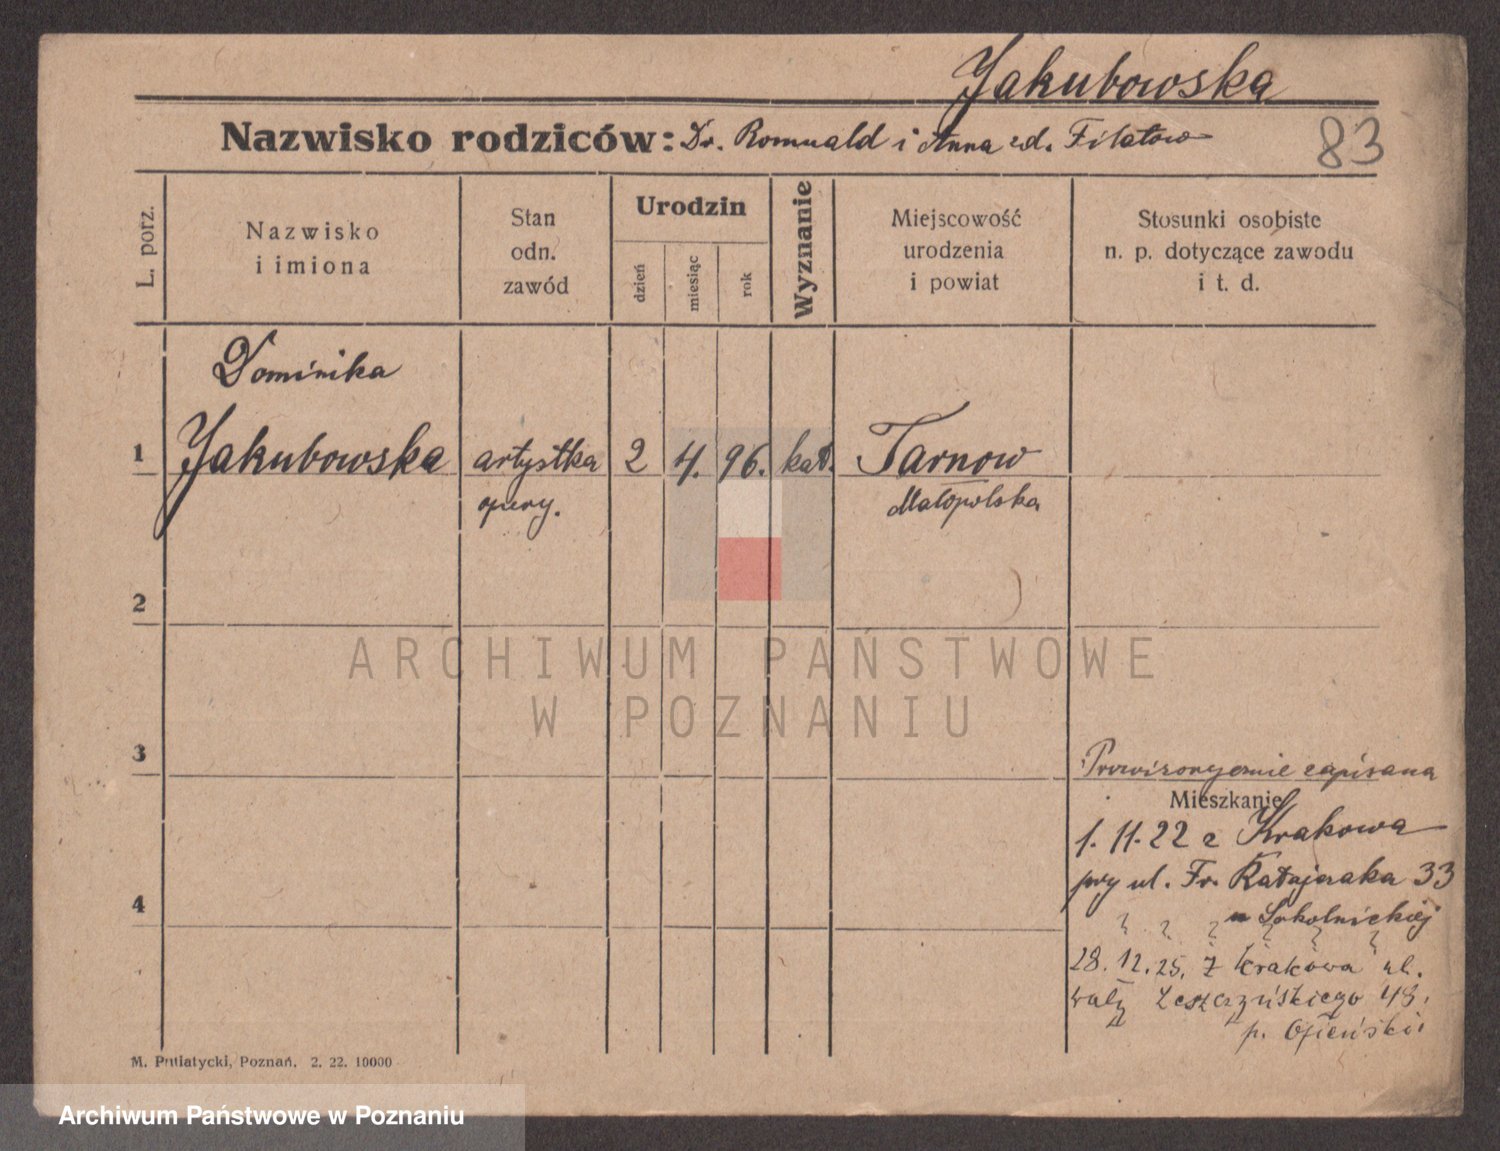 Jakubowska
Nazwisko rodziców: Dr. Romuald i Anna zd. Filatow
83
L. porz.
Nazwisko
i imiona
Stan
odn.
zawód
Urodzin
dzień
miesiąc
rok
Wyznanie
Miejscowość
urodzenia
i powiat
Stosunki osobiste
n. p. dotyczące zawodu
i t. d.
Dominika
1 Jakubowska artystka 2 4. 96. kat. Tarnow
opery. Małopolska
2
ARCHIWUM PAŃSTWOWE
W POZNANIU
3
Prowizorycznie zapisana
Mieszkanie
1. 11. 22 z Krakowa
przy ul. Fr. Ratajczaka 33
u Sokolnickiej
4
28. 12. 25. z Krakowa ul.
Wały Leszczyńskiego
p. Opieński
M. Putiatycki, Poznań. 2. 22. 10000
Archiwum Państwowe w Poznaniu